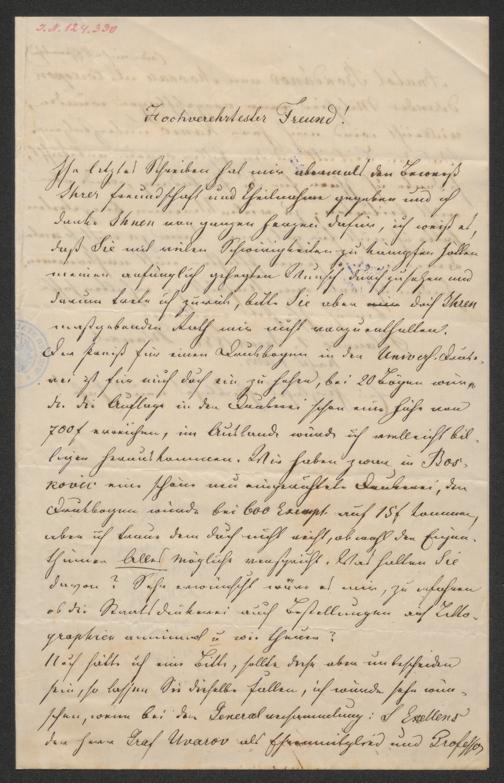 I.N. 124.330
Hochverehrtester Freund!
Ihr letztes Schreiben hat mir abermals den Beweiß
Ihrer Freundschaft und Theilnahme gegeben und ich
danke Ihnen von ganzen Herzen dafür, ich weiß es,
daß Sie mit vielen Schwierigkeiten zu kämpfen hatten
meinen anfänglich gehegten Wunsch durchzusetzen und
darum trete ich zurück, bitte Sie aber doch Ihren
maßgebenden Rath mir nicht vorzuenthalten.
Der Preiß für einen Druckbogen in der Univers. Drucke-
rei ist für mich doch ein zu hoher, bei 20 Bögen wür-
de die Auflage in der Druckerei schon eine Höhe von
700 f erreichen, im Auslande würde ich vielleicht bil-
liger herauskommen. Wir haben zwar in Bos-
kovic eine schöne neu eingerichtete Druckerei, der
Druckbogen würde bei 600 Exempl. auf 15 f kommen,
aber ich traue dem doch nicht recht, obwohl der Eigen-
thümer Alles Mögliche verspricht. Was halten Sie
davon? Sehr erwünscht wäre es mir, zu erfahren
ob die Staatsdruckerei auch Bestellungen auf Litho-
graphien annimmt u wie theuer?
Noch hätte ich eine Bitte, sollte diese aber unbescheiden
sein, so lassen Sie dieselbe fallen, ich würde sehr wün-
schen, wenn bei der Generalversammlung: S Exellenz
der Herr Graf Uvarov als Ehrenmitglied und Professor